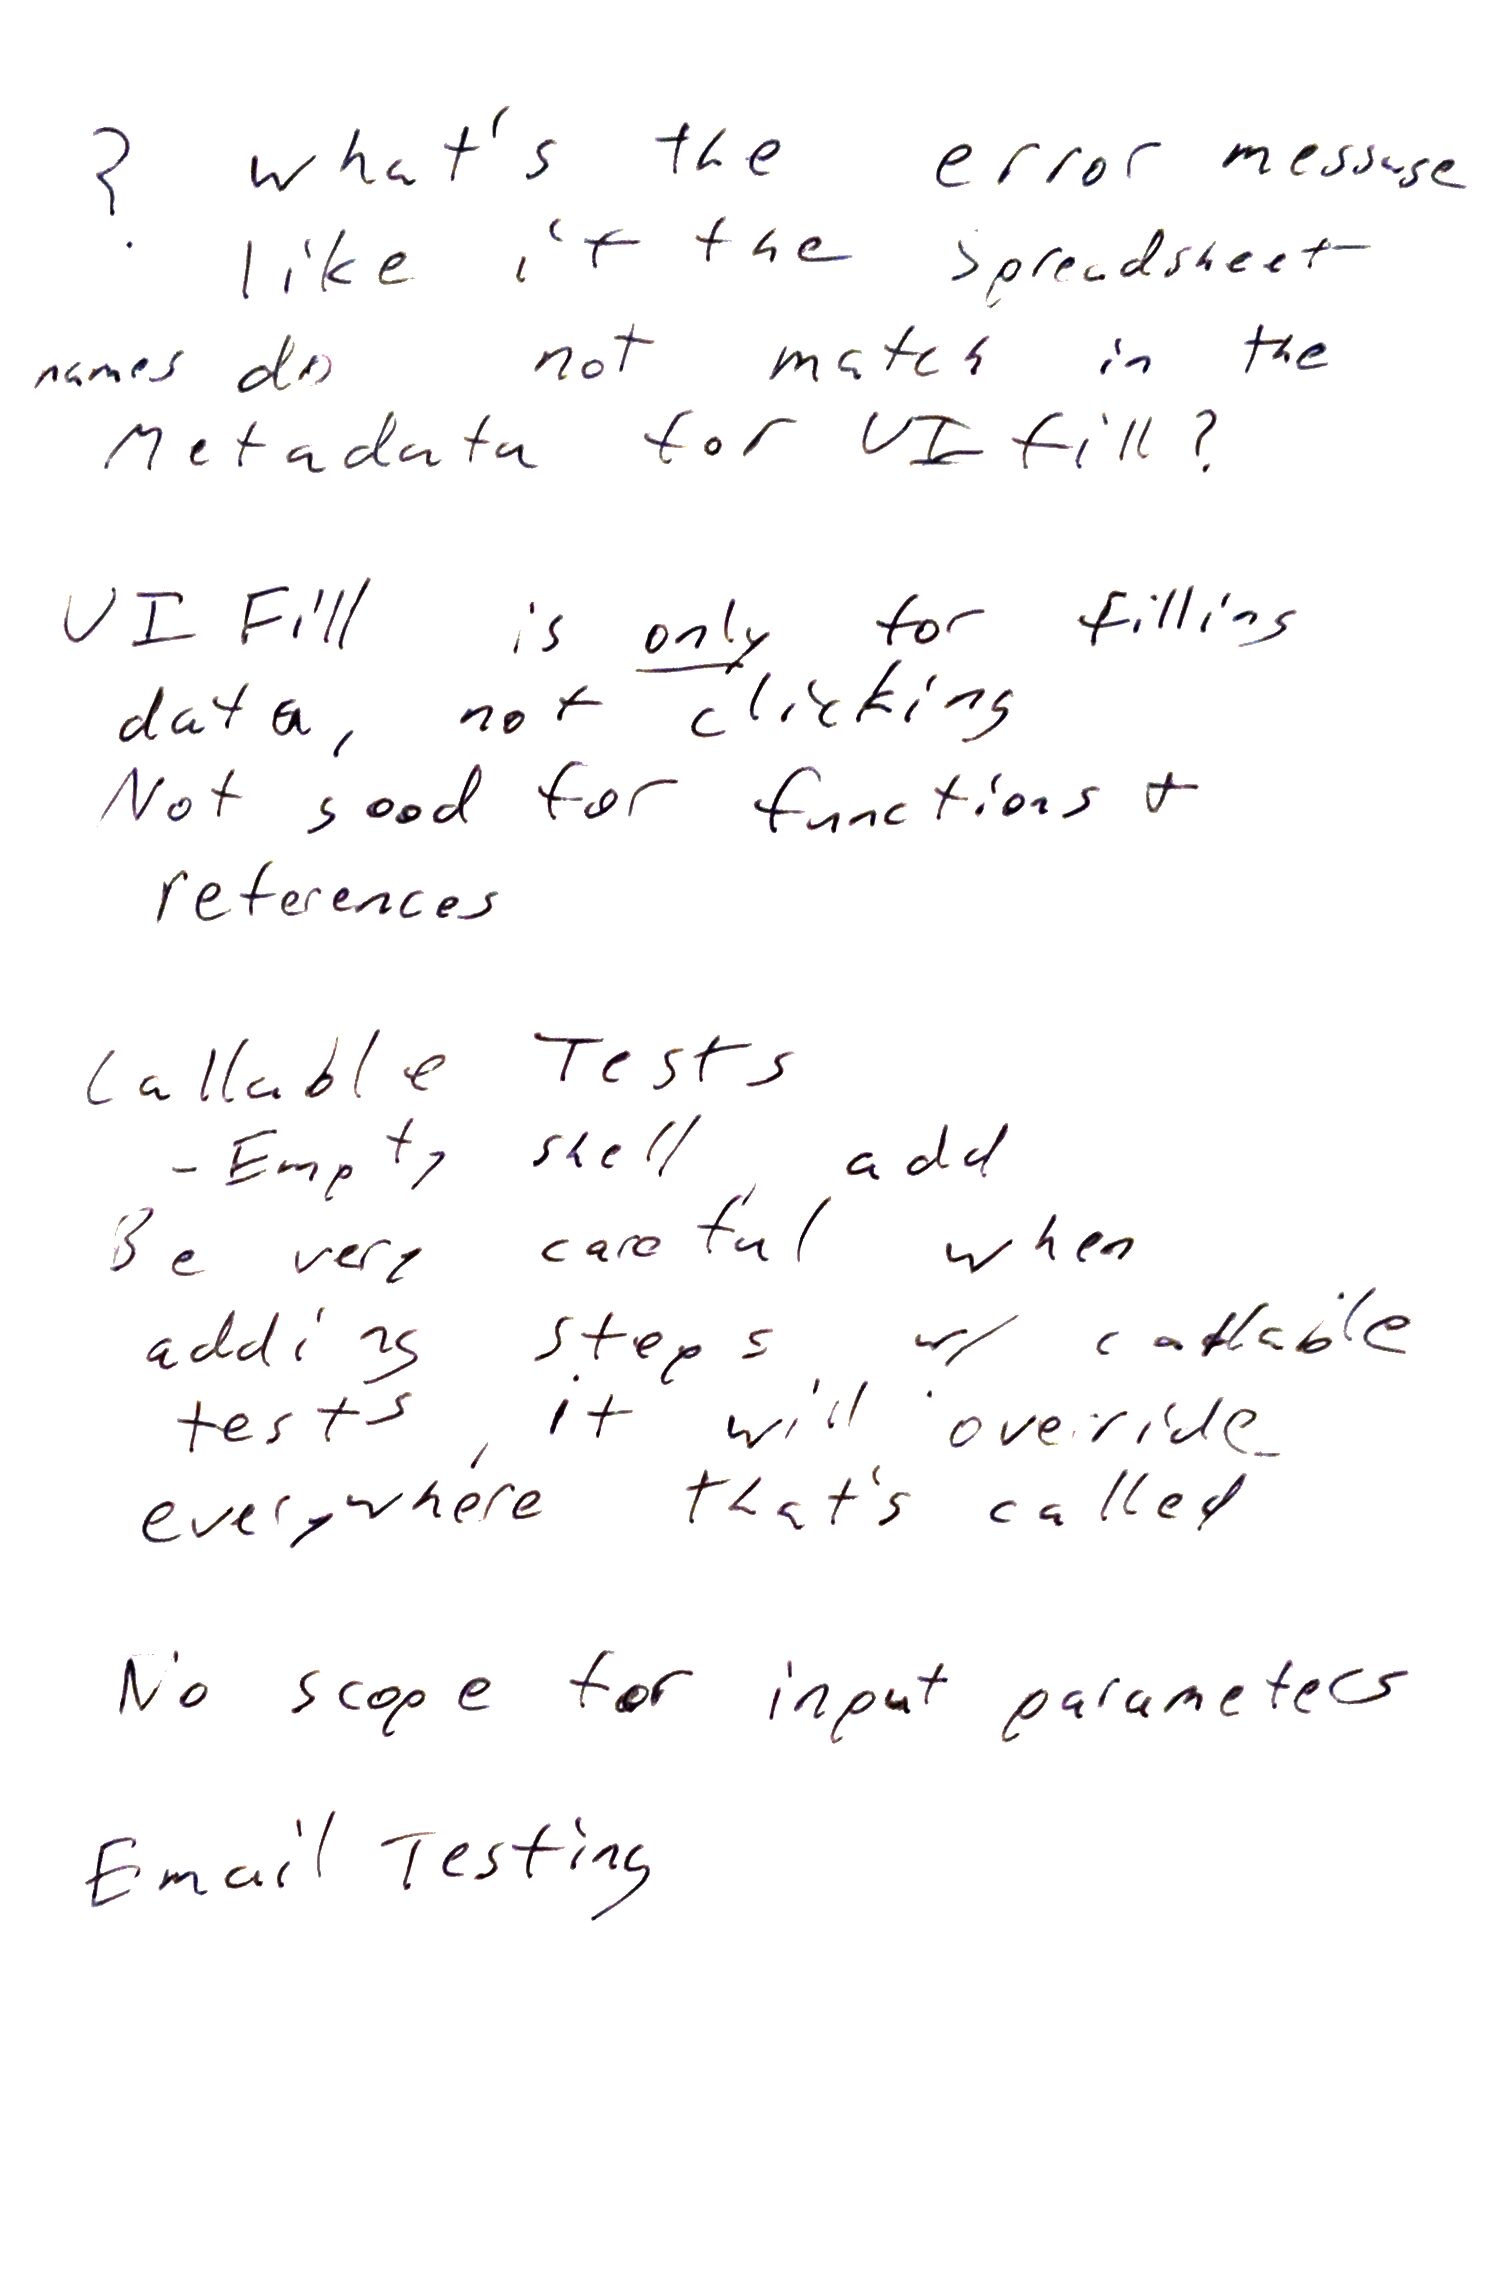 ? what's the error message
like if the spreadsheet
names do not match in the
Metadata for UI fill?
UI Fill is only for filling
data, not clicking
Not good for functions +
references
Callable Tests
- Empty shell, add
Be very careful when
adding steps w/ callable
tests, it will override
everywhere that's called
No scope for input parameters
Email Testing